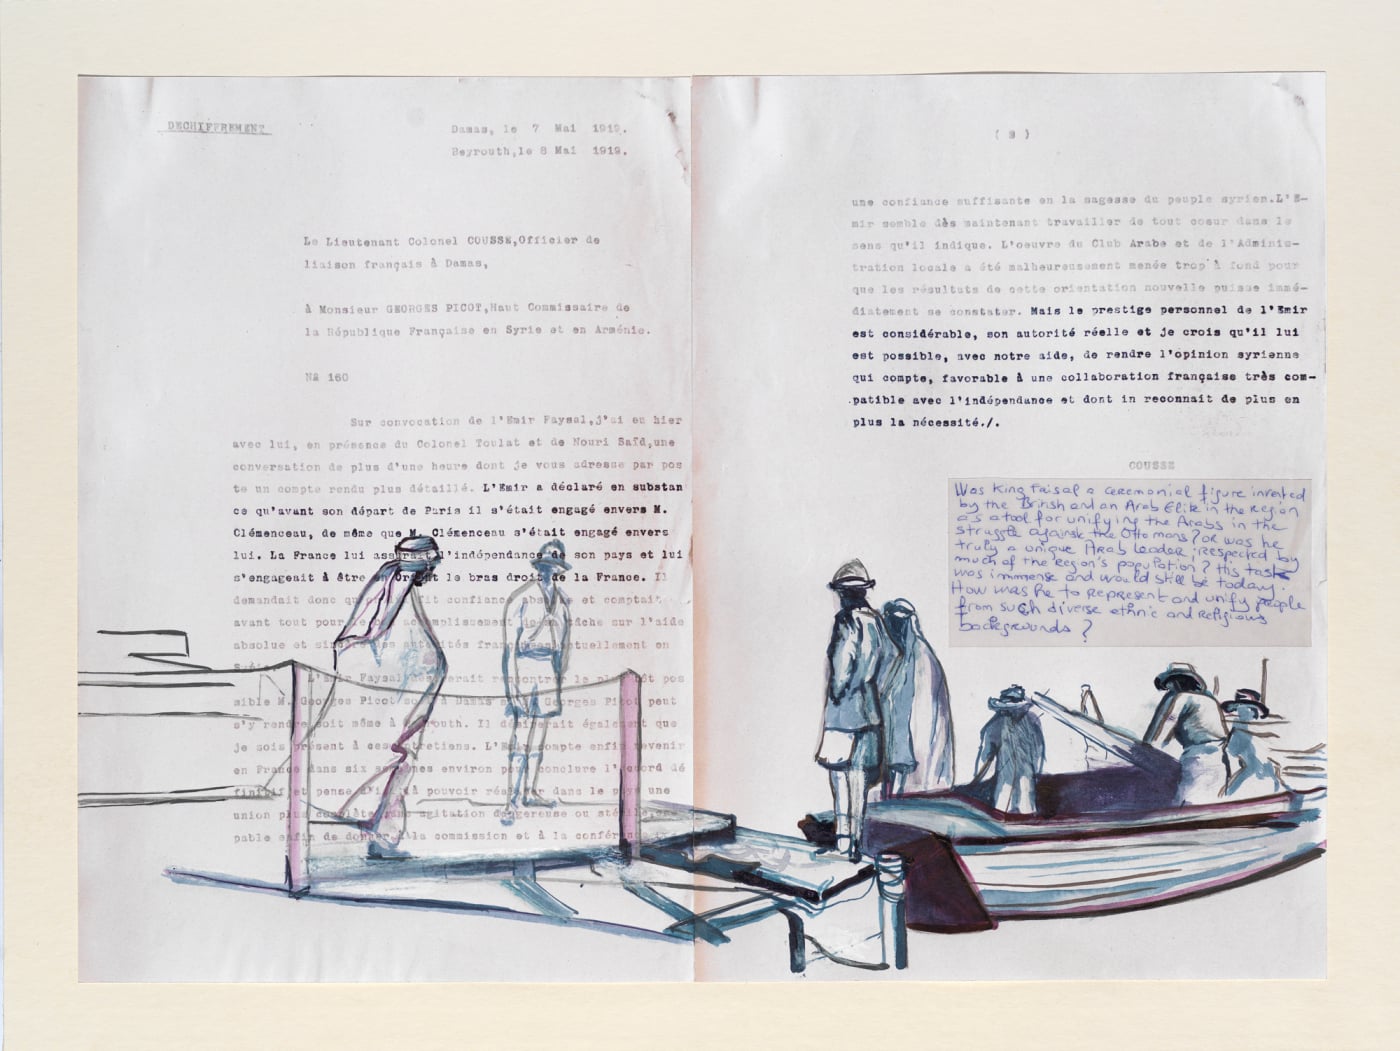 DECHIFFREMENT
Damas, le 7 Mai 1919.
Beyrouth,le 8 Mai 1919.
Le Lieutenant Colonel COUSSE,Officier de
liaison français à Damas,
à Monsieur GEORGES PICOT,Haut Commissaire de
la République Française en Syrie et en Arménie.
N° 160
Sur convocation de l'Emir Faysal,j'ai eu hier
avec lui, en présence du Colonel Toulat et de Nouri Saïd,une
conversation de plus d'une heure dont je vous adresse par pos
te un compte rendu plus détaillé. L'Emir a déclaré en substan
ce qu'avant son départ de Paris il s'était engagé envers M.
Clémenceau, de même que M. Clémenceau s'était engagé envers
lui. La France lui assurait l'indépendance de son pays et lui
s'engageait à être en Orient le bras droit de la France. Il
demandait donc qu'on fit confiance absolue et comptait
avant tout pour le accomplissement de tâche sur l'aide
absolue et sincère des autorités françaises actuellement en
L'Emir Faysal désirerait rencontrer le plus tôt pos
sible M. Georges Picot soit à Damas si M. Georges Picot peut
s'y rendre soit même à Beyrouth. Il désirerait également que
je sois présent à ces entretiens. L'Emir compte enfin revenir
en France dans six semaines environ pour conclure l'accord dé
finitif et pense d'ici là pouvoir réaliser dans le pays une
union plus complète sans agitation dangereuse ou stérile
pable enfin de donner à la commission et à la
( 2 )
une confiance suffisante en la sagesse du peuple syrien.L'E-
mir semble dès maintenant travailler de tout coeur dans le
sens qu'il indique. L'oeuvre du Club Arabe et de l'Adminis-
tration locale a été malheureusement menée trop à fond pour
que les résultats de cette orientation nouvelle puisse immé-
diatement se constater. Mais le prestige personnel de l'Emir
est considérable, son autorité réelle et je crois qu'il lui
est possible, avec notre aide, de rendre l'opinion syrienne
qui compte, favorable à une collaboration française très com-
patible avec l'indépendance et dont in reconnait de plus en
plus la nécessité./.
COUSSE
Was King Faisal a ceremonial figure invented
by the British and an Arab Elite in the Region
as a tool for unifying the Arabs in the
struggle against the Ottomans? or was he
truly a unique Arab leader, respected by
much of the Region's population? His task
was immense and would still be today.
How was he to represent and unify people
from such diverse ethnic and religious
backgrounds?